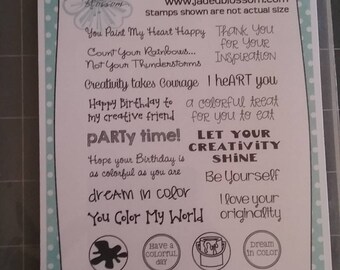 www.jadedblossom.com
stamps shown are not actual size
You Paint My Heart Happy
Thank You
for Your
Inspiration
Count Your Rainbows...
Not Your Thunderstorms
Creativity takes Courage
I heART you
Happy Birthday to
my creative friend
a colorful treat
for you to eat
pARTy time!
LET YOUR
CREATIVITY
SHINE
Hope your Birthday is
as colorful as you are
Be Yourself
dream in color
I love your
originality
You Color My World
Have a
colorful
day
Dream
in color